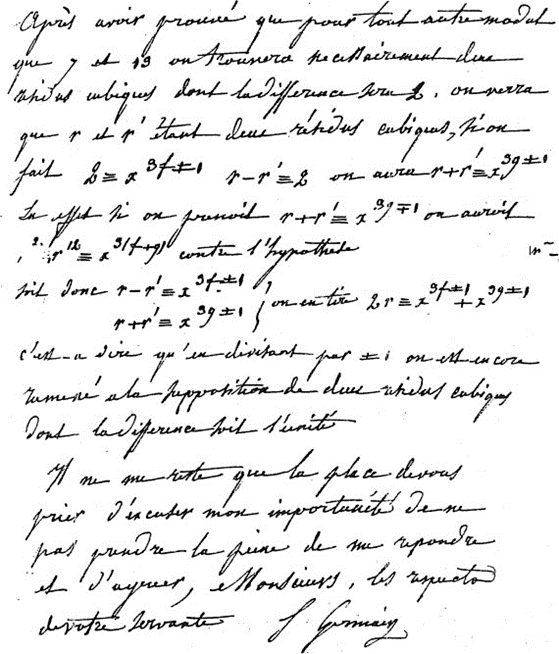 Après avoir prouvé que pour tout autre modul
que 7 et 13 on trouvera necessairement deux
résidus cubiques dont la difference sera 2. on verra
que r et r' étant deux résidus cubiques, si on
fait 2 ≡ x^{3f±1} r-r' ≡ 2 on aura r+r' ≡ x^{3g±1}
En effet si on prenoit r+r' ≡ x^{3g∓1} on auroit
r'^2 ≡ x^{3(f+g)} contre l'hypothese
soit donc r-r' ≡ x^{3f±1}
r+r' ≡ x^{3g±1} } on en tire 2r ≡ x^{3f±1} + x^{3g±1}
c'est-a dire qu'en divisant par ±1 on est encore
ramené a la supposition de deux résidus cubiques
dont la difference soit l'unité
Il ne me reste que la place de vous
prier d'excuser mon importunité de ne
pas prendre la peine de me repondre
et d'agreer, Monsieurs, les respects
de votre servante S Germain